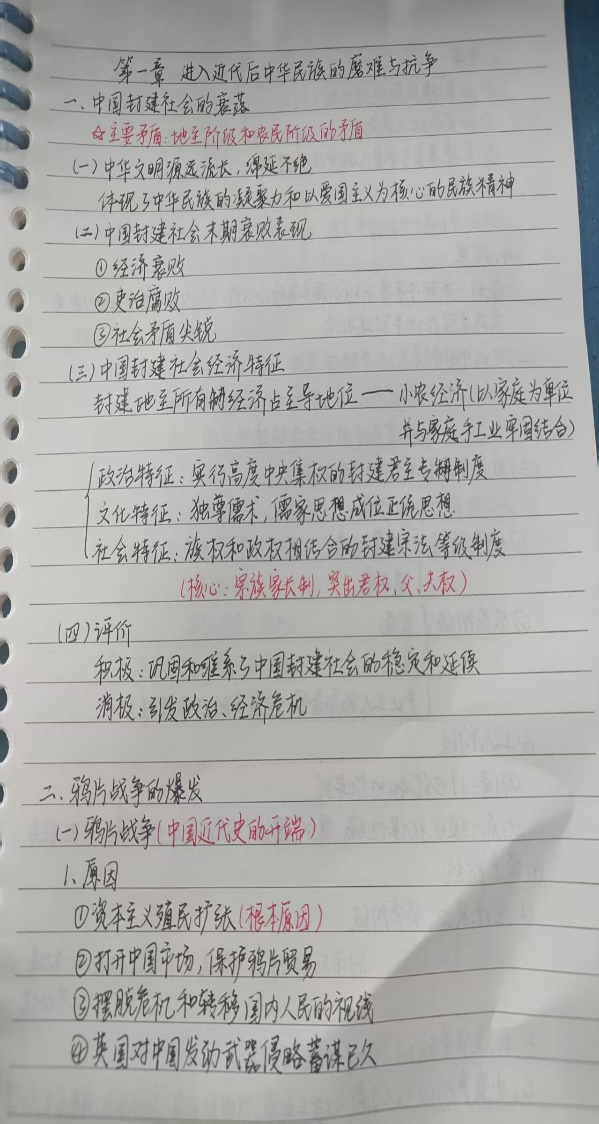 第一章 进入近代后中华民族的磨难与抗争
一、中国封建社会的衰落
☆主要矛盾:地主阶级和农民阶级的矛盾
(一)中华文明源远流长,绵延不绝
体现了中华民族的凝聚力和以爱国主义为核心的民族精神
(二)中国封建社会末期衰败表现
①经济衰败
②吏治腐败
③社会矛盾尖锐
(三)中国封建社会经济特征
封建地主所有制经济占主导地位——小农经济(以家庭为单位
并与家庭手工业牢固结合)
政治特征:实行高度中央集权的封建君主专制制度
文化特征:独尊儒术,儒家思想成位正统思想
社会特征:族权和政权相结合的封建宗法等级制度
(核心:宗族家长制,突出君权、父、夫权)
(四)评价
积极:巩固和维系了中国封建社会的稳定和延续
消极:引发政治、经济危机
二、鸦片战争的爆发
(一)鸦片战争(中国近代史的开端)
1、原因
①资本主义殖民扩张(根本原因)
②打开中国市场,保护鸦片贸易
③摆脱危机和转移国内人民的视线
④英国对中国发动武器侵略蓄谋已久